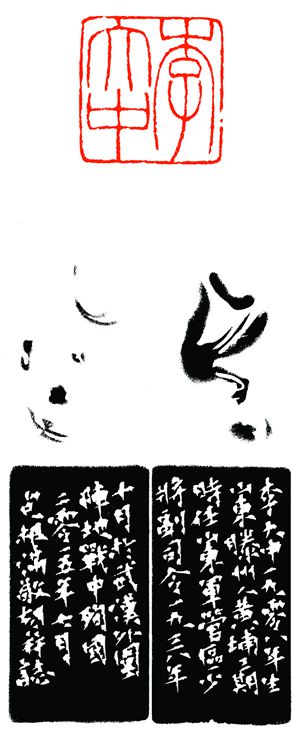 李大中
李大中一九零八年生
山東滕州人黄埔三期
時任東軍管區少
將副司令一九三八年
十月於武漢外圍
陣地戰中殉國
二零二五年七月
滿敬刻誌